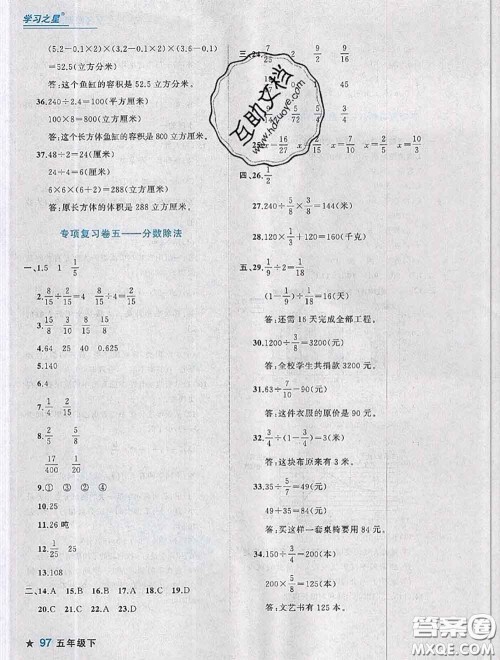 学习之星®
(5.2-0.1×2)×(3.2-0.1×2)×(3.6-0.1)
=52.5(立方分米)
答:这个鱼缸的容积是 52.5 立方分米。
36.240÷2.4=100(平方厘米)
100×8=800(立方厘米)
答:这个长方体鱼缸的容积是 800 立方厘米。
37.48÷2=24(厘米)
24÷4=6(厘米)
6×6×(6+2)=288(立方厘米)
答:原长方体的体积是 288 立方厘米。
专项复习卷五——分数除法
一、1.5 1 1/5
2. 8/15÷2=4/15 4/15÷8/15=
3. 15/8 15/8 8/15
4.64 25 40 0.625
5.140
7. 1/4 2/15
17/400 1/20
9.① ③ ② ④
10.25
11.26 吨
12. 1/25
13.40
二、14.A 15.A 16.D 17.D 18.C 19.D
20.C 21.D 22.C 23.D
★ 97 五年级下
三、24.
9/10 2/9
25. x=16/27 x=2/15 x=7/10 x=2/15
四、26. 1/2
28.
=160(千克)
五、29. 1/9÷2=1/18
(1-1/9)÷1/18=16(天)
答:还需 16 天完成全部工程。
30.1200÷3/8=3200(元)
答:全校学生共捐款 3200 元。
31.63÷7/10=90(元)
答:这件衣服的原价是 90 元。
32. 3/4÷(1-3/4)=3(米)
答:这块布原来有 3 米。
33.35÷5/7=49(元)
49+35=84(元)
答:买这样一套桌椅要用 84 元。
34.150÷3/4=200(本)
200×5/8=125(本)
答:文艺书有 125 本。
互助文档
www.hdzuoye.com
答案圈
MXQE.COM